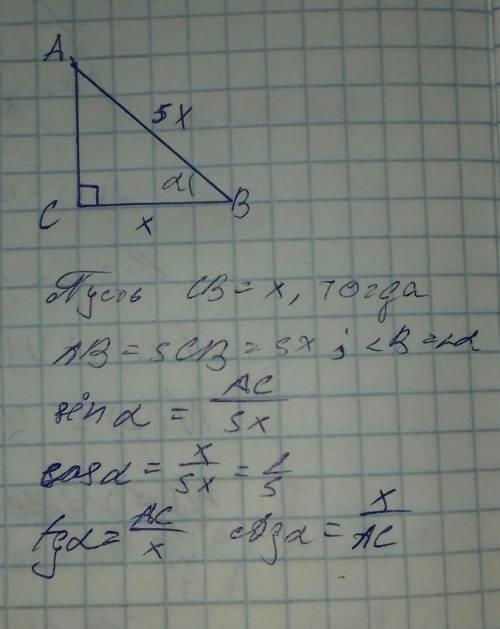 A
5x
α
C
B
x
Пусть CB = x, тогда
AB = 5CB = 5x ; ∠B = ∠α
sin α = AC/5x
cos α = x/5x = 1/5
tg α = AC/x ctg α = x/AC